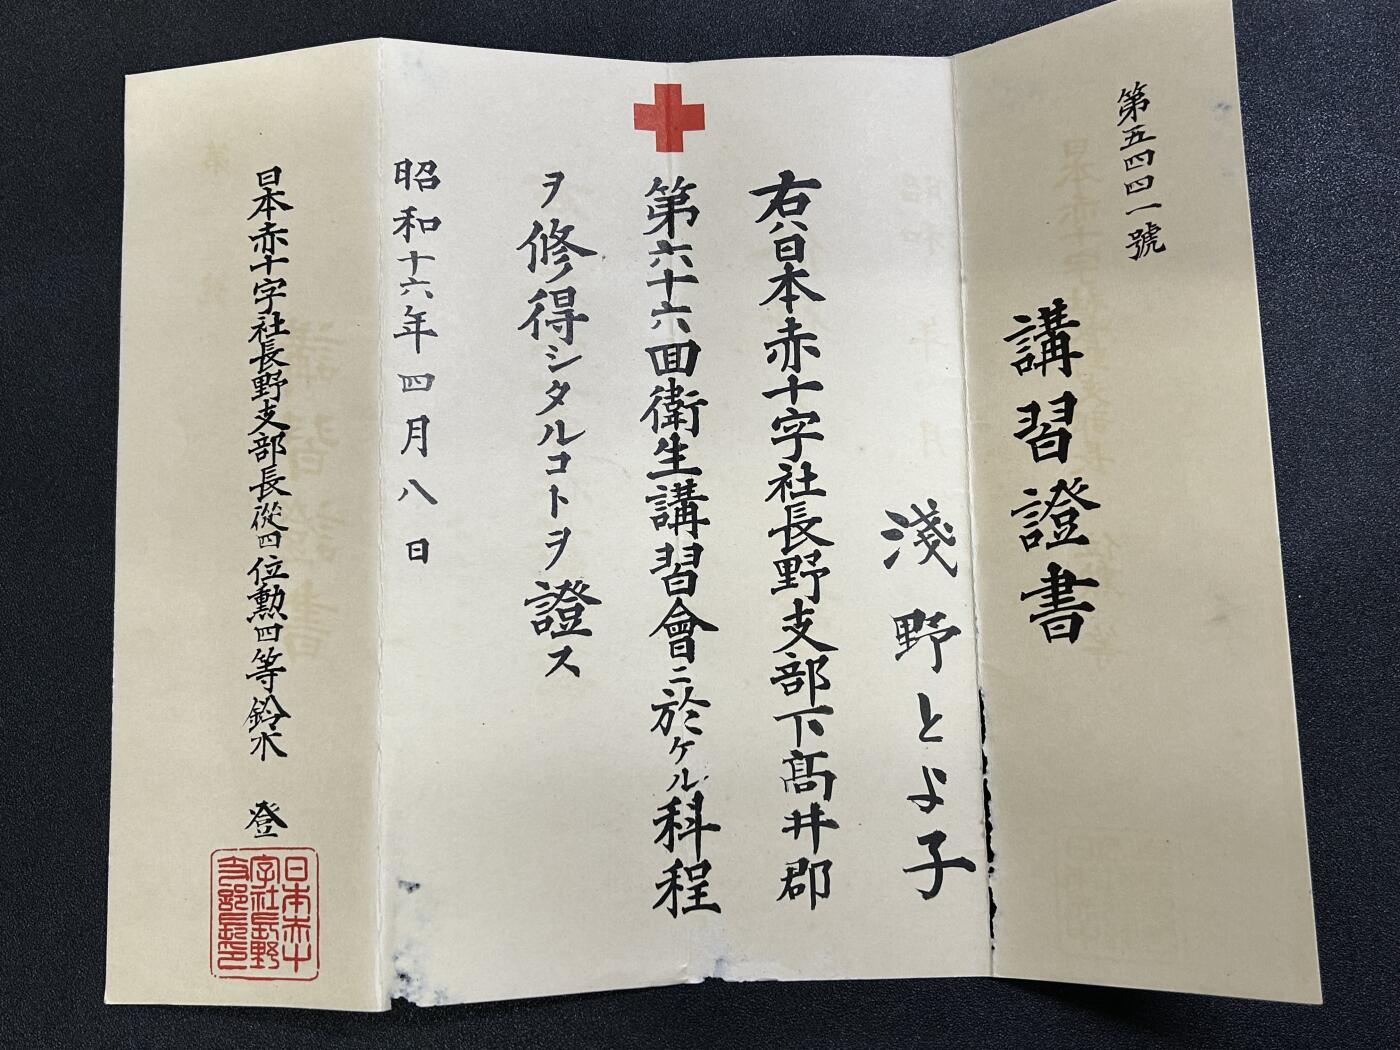 第五四四一號
講習證書
淺野とよ子
右ハ日本赤十字社長野支部下高井郡
第六十六回衞生講習會ニ於ケル科程
ヲ修得シタルコトヲ證ス
昭和十六年四月八日
日本赤十字社長野支部長從四位勲四等鈴木 登
日本赤十
字社長野
支部長印